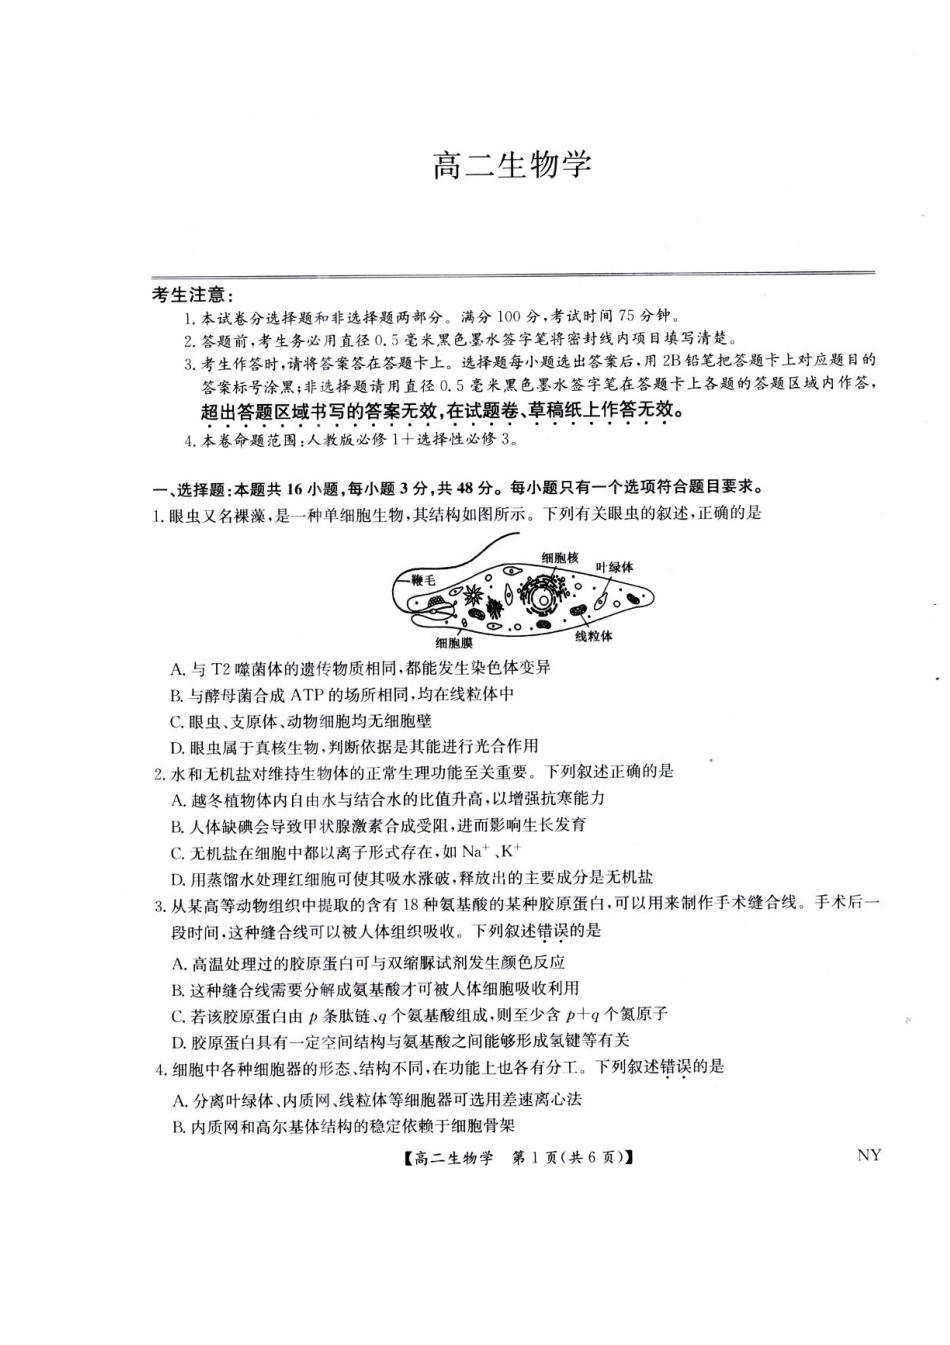 高二生物学
考生注意：
1.本试卷分选择题和非选择题两部分。满分100分，考试时间75分钟。
2.答题前，考生务必用直径0.5毫米黑色墨水签字笔将密封线内项目填写清楚。
3.考生作答时，请将答案答在答题卡上。选择题每小题选出答案后，用2B铅笔把答题卡上对应题目的
答案标号涂黑；非选择题请用直径0.5毫米黑色墨水签字笔在答题卡上各题的答题区域内作答，
超出答题区域书写的答案无效，在试题卷、草稿纸上作答无效。
4.本卷命题范围：人教版必修1＋选择性必修3。
一、选择题：本题共16小题，每小题3分，共48分。每小题只有一个选项符合题目要求。
1.眼虫又名裸藻，是一种单细胞生物，其结构如图所示。下列有关眼虫的叙述，正确的是
细胞核
叶绿体
鞭毛
线粒体
细胞膜
A.与T2噬菌体的遗传物质相同，都能发生染色体变异
B.与酵母菌合成ATP的场所相同，均在线粒体中
C.眼虫、支原体、动物细胞均无细胞壁
D.眼虫属于真核生物，判断依据是其能进行光合作用
2.水和无机盐对维持生物体的正常生理功能至关重要。下列叙述正确的是
A.越冬植物体内自由水与结合水的比值升高，以增强抗寒能力
B.人体缺碘会导致甲状腺激素合成受阻，进而影响生长发育
C.无机盐在细胞中都以离子形式存在，如Na⁺、K⁺
D.用蒸馏水处理红细胞可使其吸水涨破，释放出的主要成分是无机盐
3.从某高等动物组织中提取的含有18种氨基酸的某种胶原蛋白，可以用来制作手术缝合线。手术后一
段时间，这种缝合线可以被人体组织吸收。下列叙述错误的是
A.高温处理过的胶原蛋白可与双缩脲试剂发生颜色反应
B.这种缝合线需要分解成氨基酸才可被人体细胞吸收利用
C.若该胶原蛋白由p条肽链、q个氨基酸组成，则至少含p＋q个氮原子
D.胶原蛋白具有一定空间结构与氨基酸之间能够形成氢键等有关
4.细胞中各种细胞器的形态、结构不同，在功能上也各有分工。下列叙述错误的是
A.分离叶绿体、内质网、线粒体等细胞器可选用差速离心法
B.内质网和高尔基体结构的稳定依赖于细胞骨架
【高二生物学 第1页(共6页)】
NY